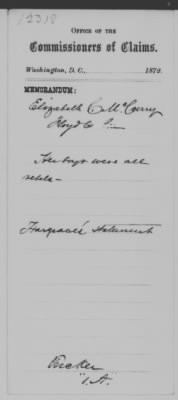 12318
OFFICE OF THE
Commissioners of Claims.
Washington, D. C., 1872.
MEMORANDUM:
Elizabeth C. McCurry
Floyd Co
Her boys were all
rebels—
Hargrave's statement
Tucker
"1. A."